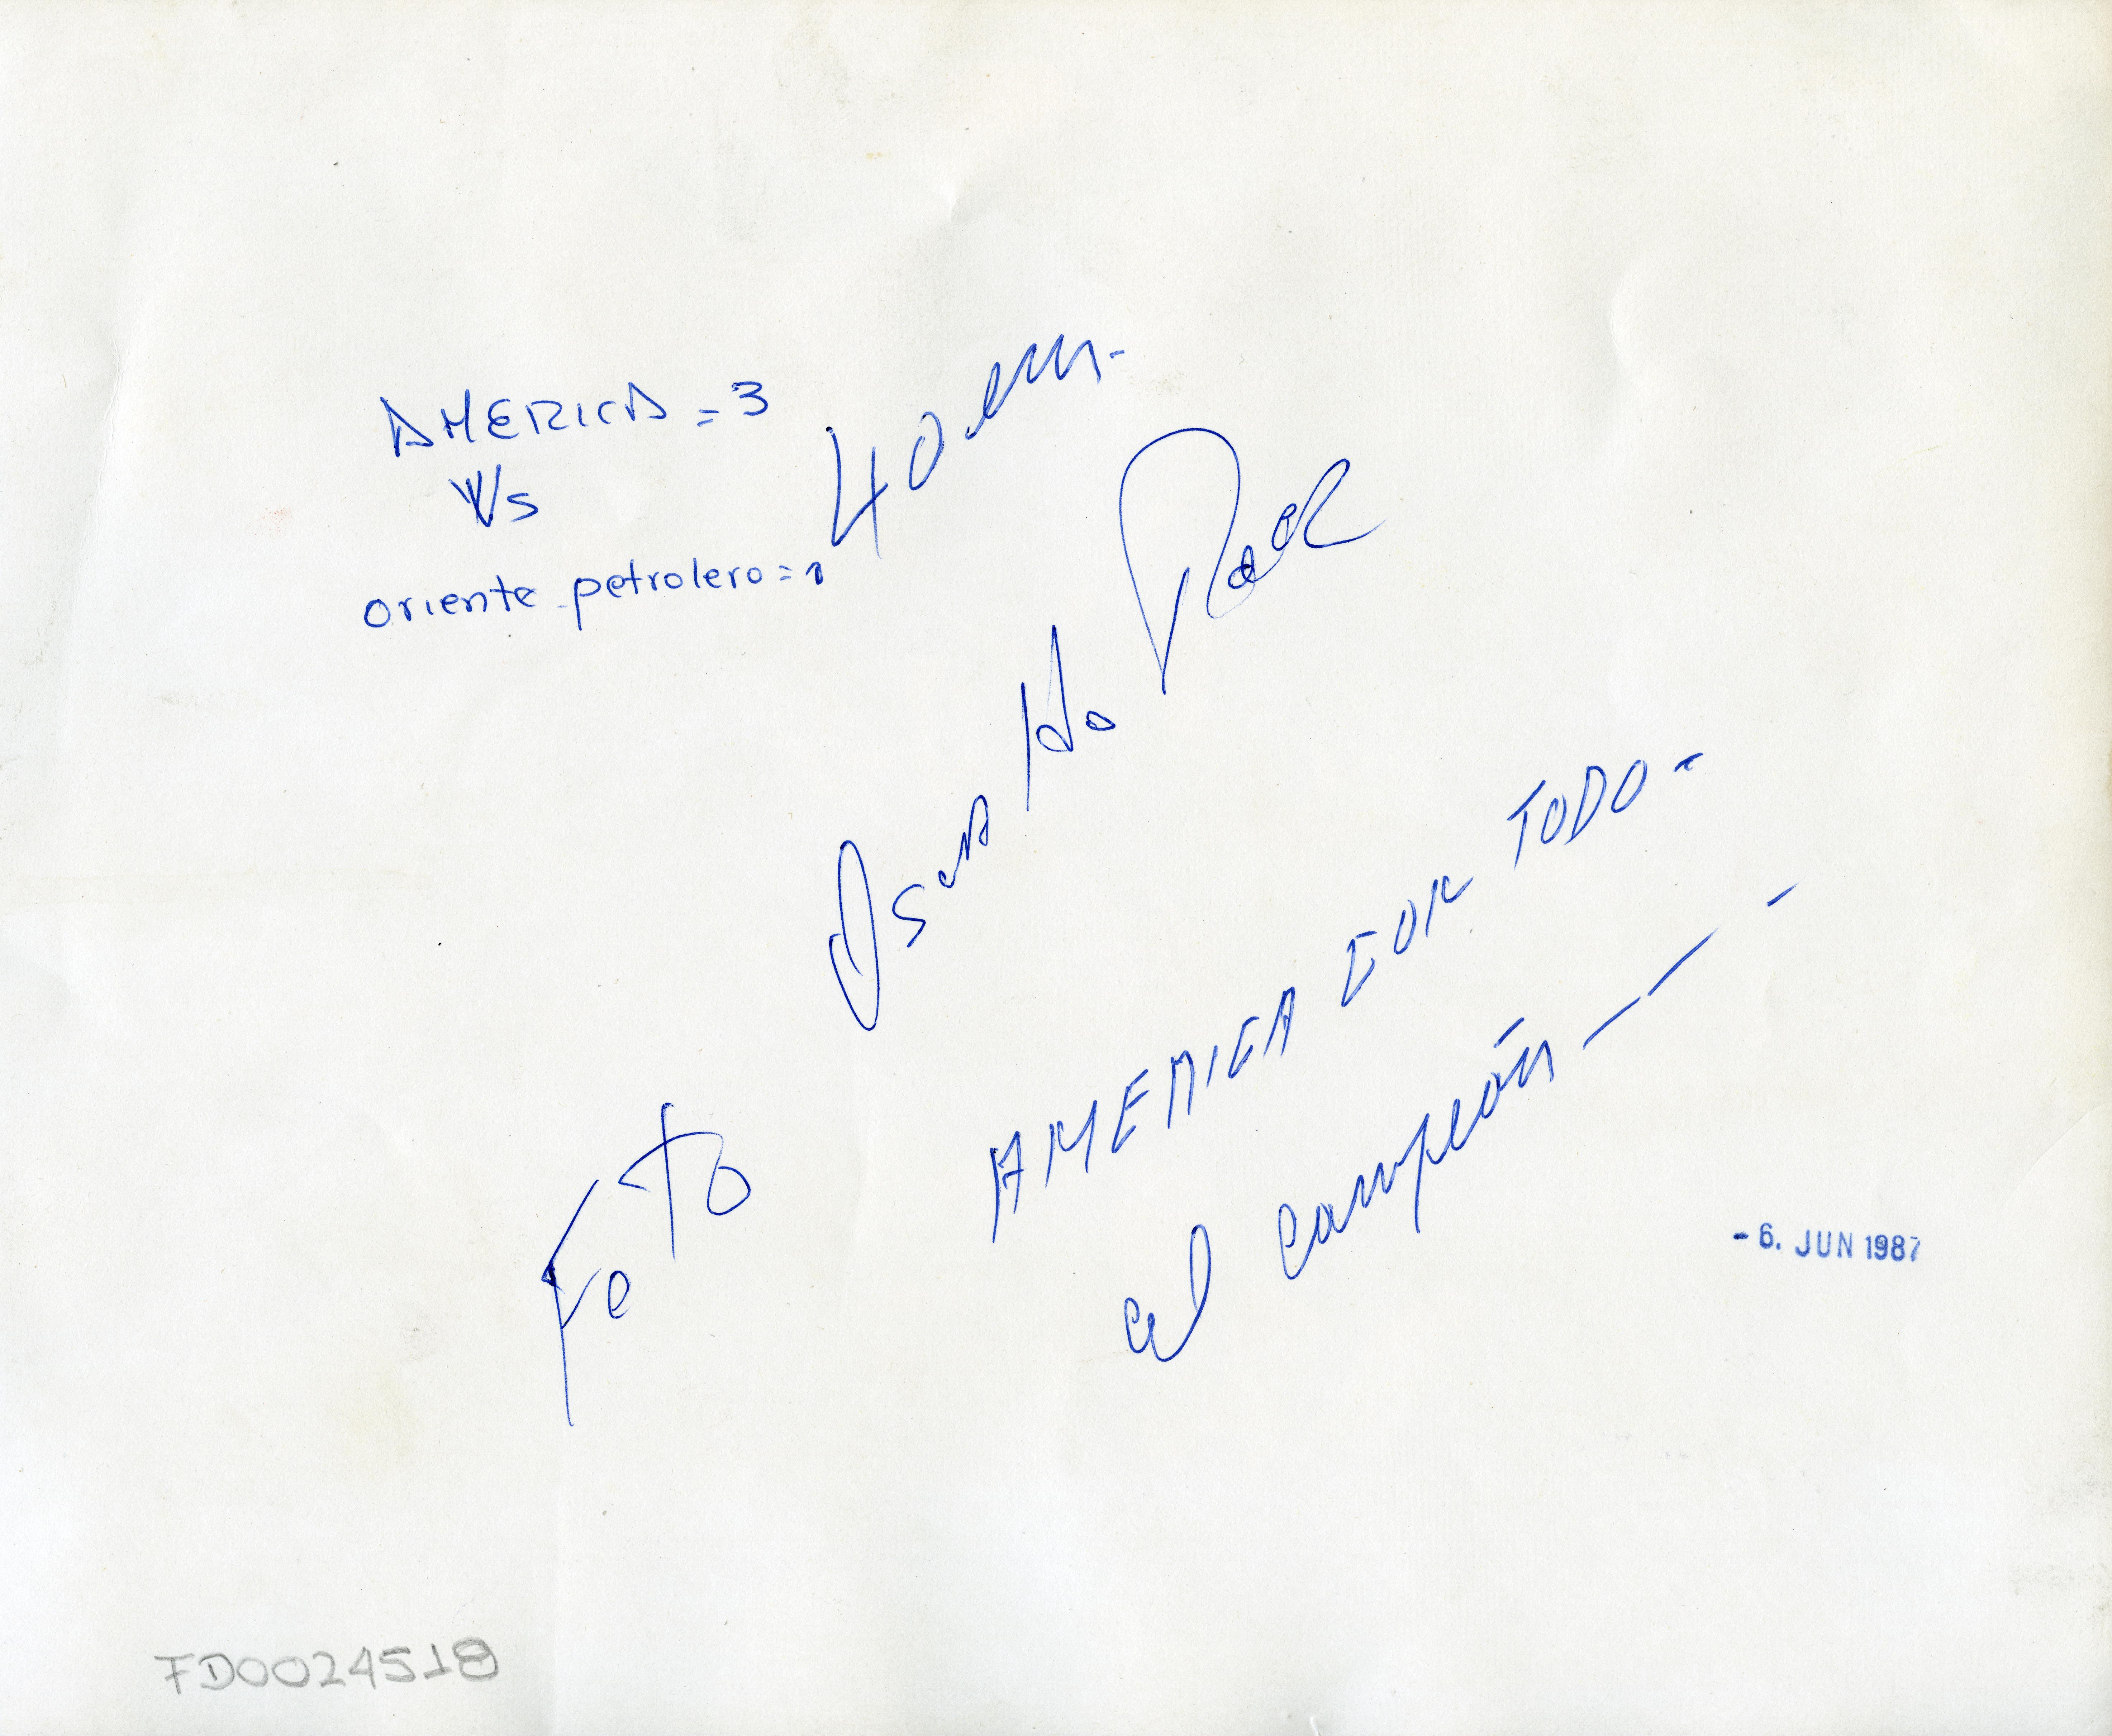 AMERICA = 3
Vs
oriente petrolero = 1
40 em-
Foto Oscar
AMERICA CON TODO -
al campeón — — -
- 6. JUN 1987
FD0024518